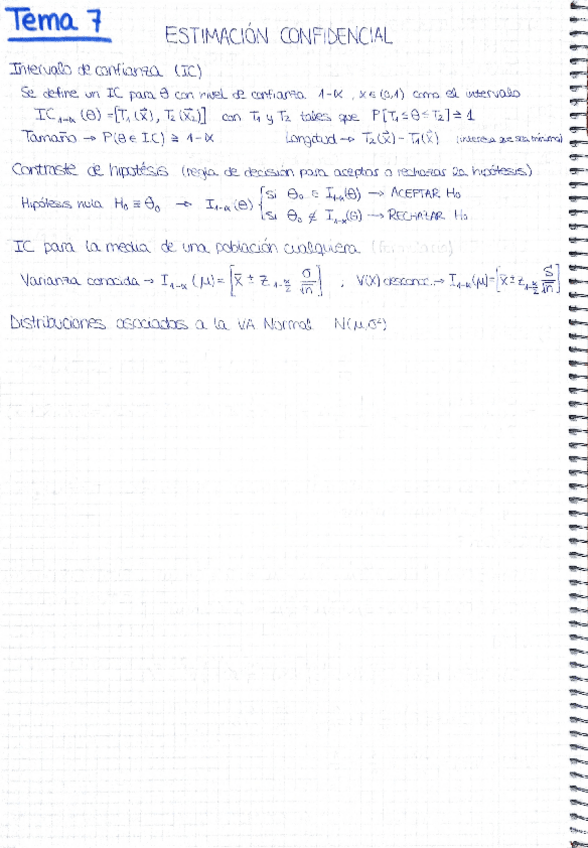 Tema 7
ESTIMACIÓN CONFIDENCIAL
Intervalo de confianza (IC)
Se define un IC para θ con nivel de confianza 1-α, α ∈ (0,1) como el intervalo
IC₁₋α (θ) = [T₁(x⃗), T₂(x⃗₂)] con T₁ y T₂ tales que P[T₁ ≤ θ ≤ T₂] ≥ 1
Tamaño → P(θ ∈ IC) ≥ 1-α Longitud → T₂(x⃗) - T₁(x⃗) (interesa que sea mínima)
Contraste de hipótésis (regla de decisión para aceptar o rechazar la hipótesis)
Hipótesis nula H₀ ≡ θ₀ → I₁₋α(θ) { si θ₀ ∈ I₁₋α(θ) → ACEPTAR H₀
si θ₀ ∉ I₁₋α(θ) → RECHAZAR H₀
IC para la media de una población cualquiera (formulario)
Varianza conocida → I₁₋α(μ) = [x̄ ± z₁₋α/₂ σ/√n] , V(X) desconoc. → I₁₋α(μ) = [x̄ ± z₁₋α/₂ S/√n]
Distribuciones asociadas a la VA Normal N(μ,σ²)